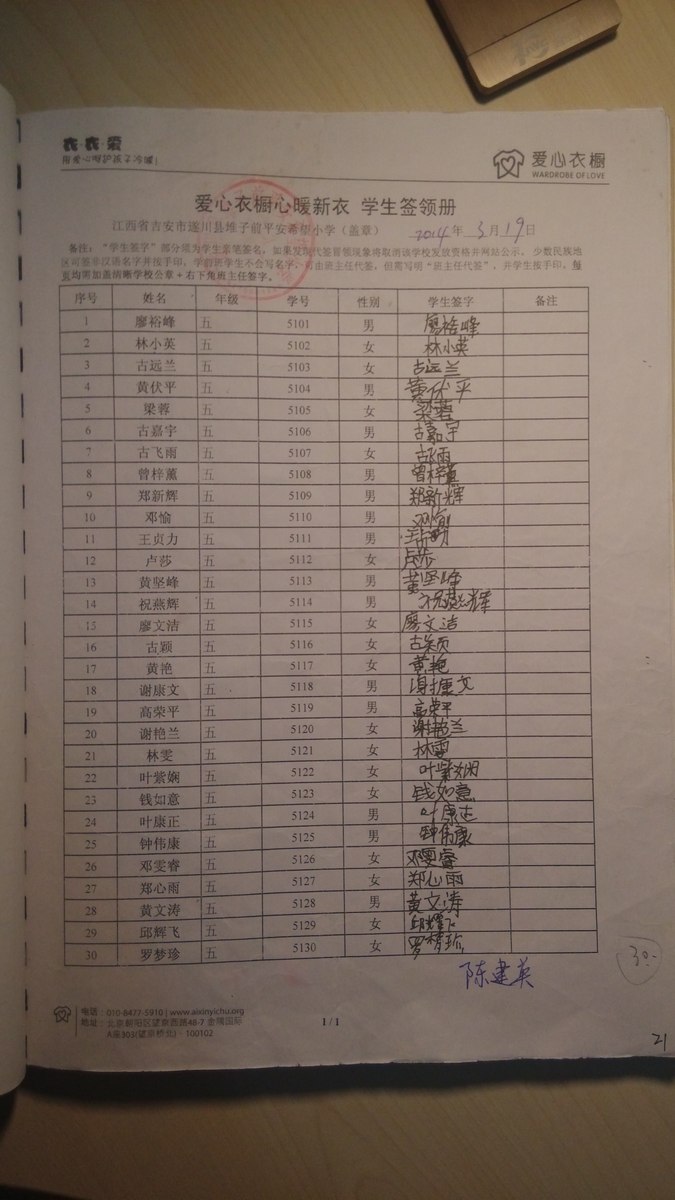 衣·衣·爱
用爱心呵护孩子冷暖!
爱心衣橱
WARDROBE OF LOVE
爱心衣橱心暖新衣 学生签领册
江西省吉安市遂川县堆子前平安希望小学(盖章) 2014年 3月 19日
备注:“学生签字”部分须为学生亲笔签名,如果发现代签冒领现象将取消该学校发放资格并网站公示。少数民族地
区可签非汉语名字并按手印,学前班学生不会写名字,可由班主任代签,但需写明“班主任代签”,并学生按手印。每
页均需加盖清晰学校公章+右下角班主任签字。
序号 姓名 年级 学号 性别 学生签字 备注
1 廖裕峰 五 5101 男 廖裕峰
2 林小英 五 5102 女 林小英
3 古远兰 五 5103 女 古远兰
4 黄伏平 五 5104 男 黄伏平
5 梁蓉 五 5105 女 梁蓉
6 古嘉宇 五 5106 男 古嘉宇
7 古飞雨 五 5107 女 古飞雨
8 曾梓薰 五 5108 男 曾梓薰
9 郑新辉 五 5109 男 郑新辉
10 邓愉 五 5110 男 邓愉
11 王贞力 五 5111 男
12 卢莎 五 5112 女 卢莎
13 黄坚峰 五 5113 男 黄坚峰
14 祝燕辉 五 5114 男 祝燕辉
15 廖文洁 五 5115 女 廖文洁
16 古颖 五 5116 女 古颖
17 黄艳 五 5117 女 黄艳
18 谢康文 五 5118 男 谢康文
19 高荣平 五 5119 男 高荣平
20 谢艳兰 五 5120 女 谢艳兰
21 林雯 五 5121 女 林雯
22 叶紫娴 五 5122 女 叶紫娴
23 钱如意 五 5123 女 钱如意
24 叶康正 五 5124 男 叶康正
25 钟伟康 五 5125 男 钟伟康
26 邓雯睿 五 5126 女 邓雯睿
27 郑心雨 五 5127 女 郑心雨
28 黄文涛 五 5128 男 黄文涛
29 邱辉飞 五 5129 女 邱辉飞
30 罗梦珍 五 5130 女 罗梦珍
陈建英
30.
电话:010-8477-5910 | www.aixinyichu.org
地址:北京朝阳区望京西路48-7 金隅国际
A座303(望京桥北)·100102
1 / 1
21